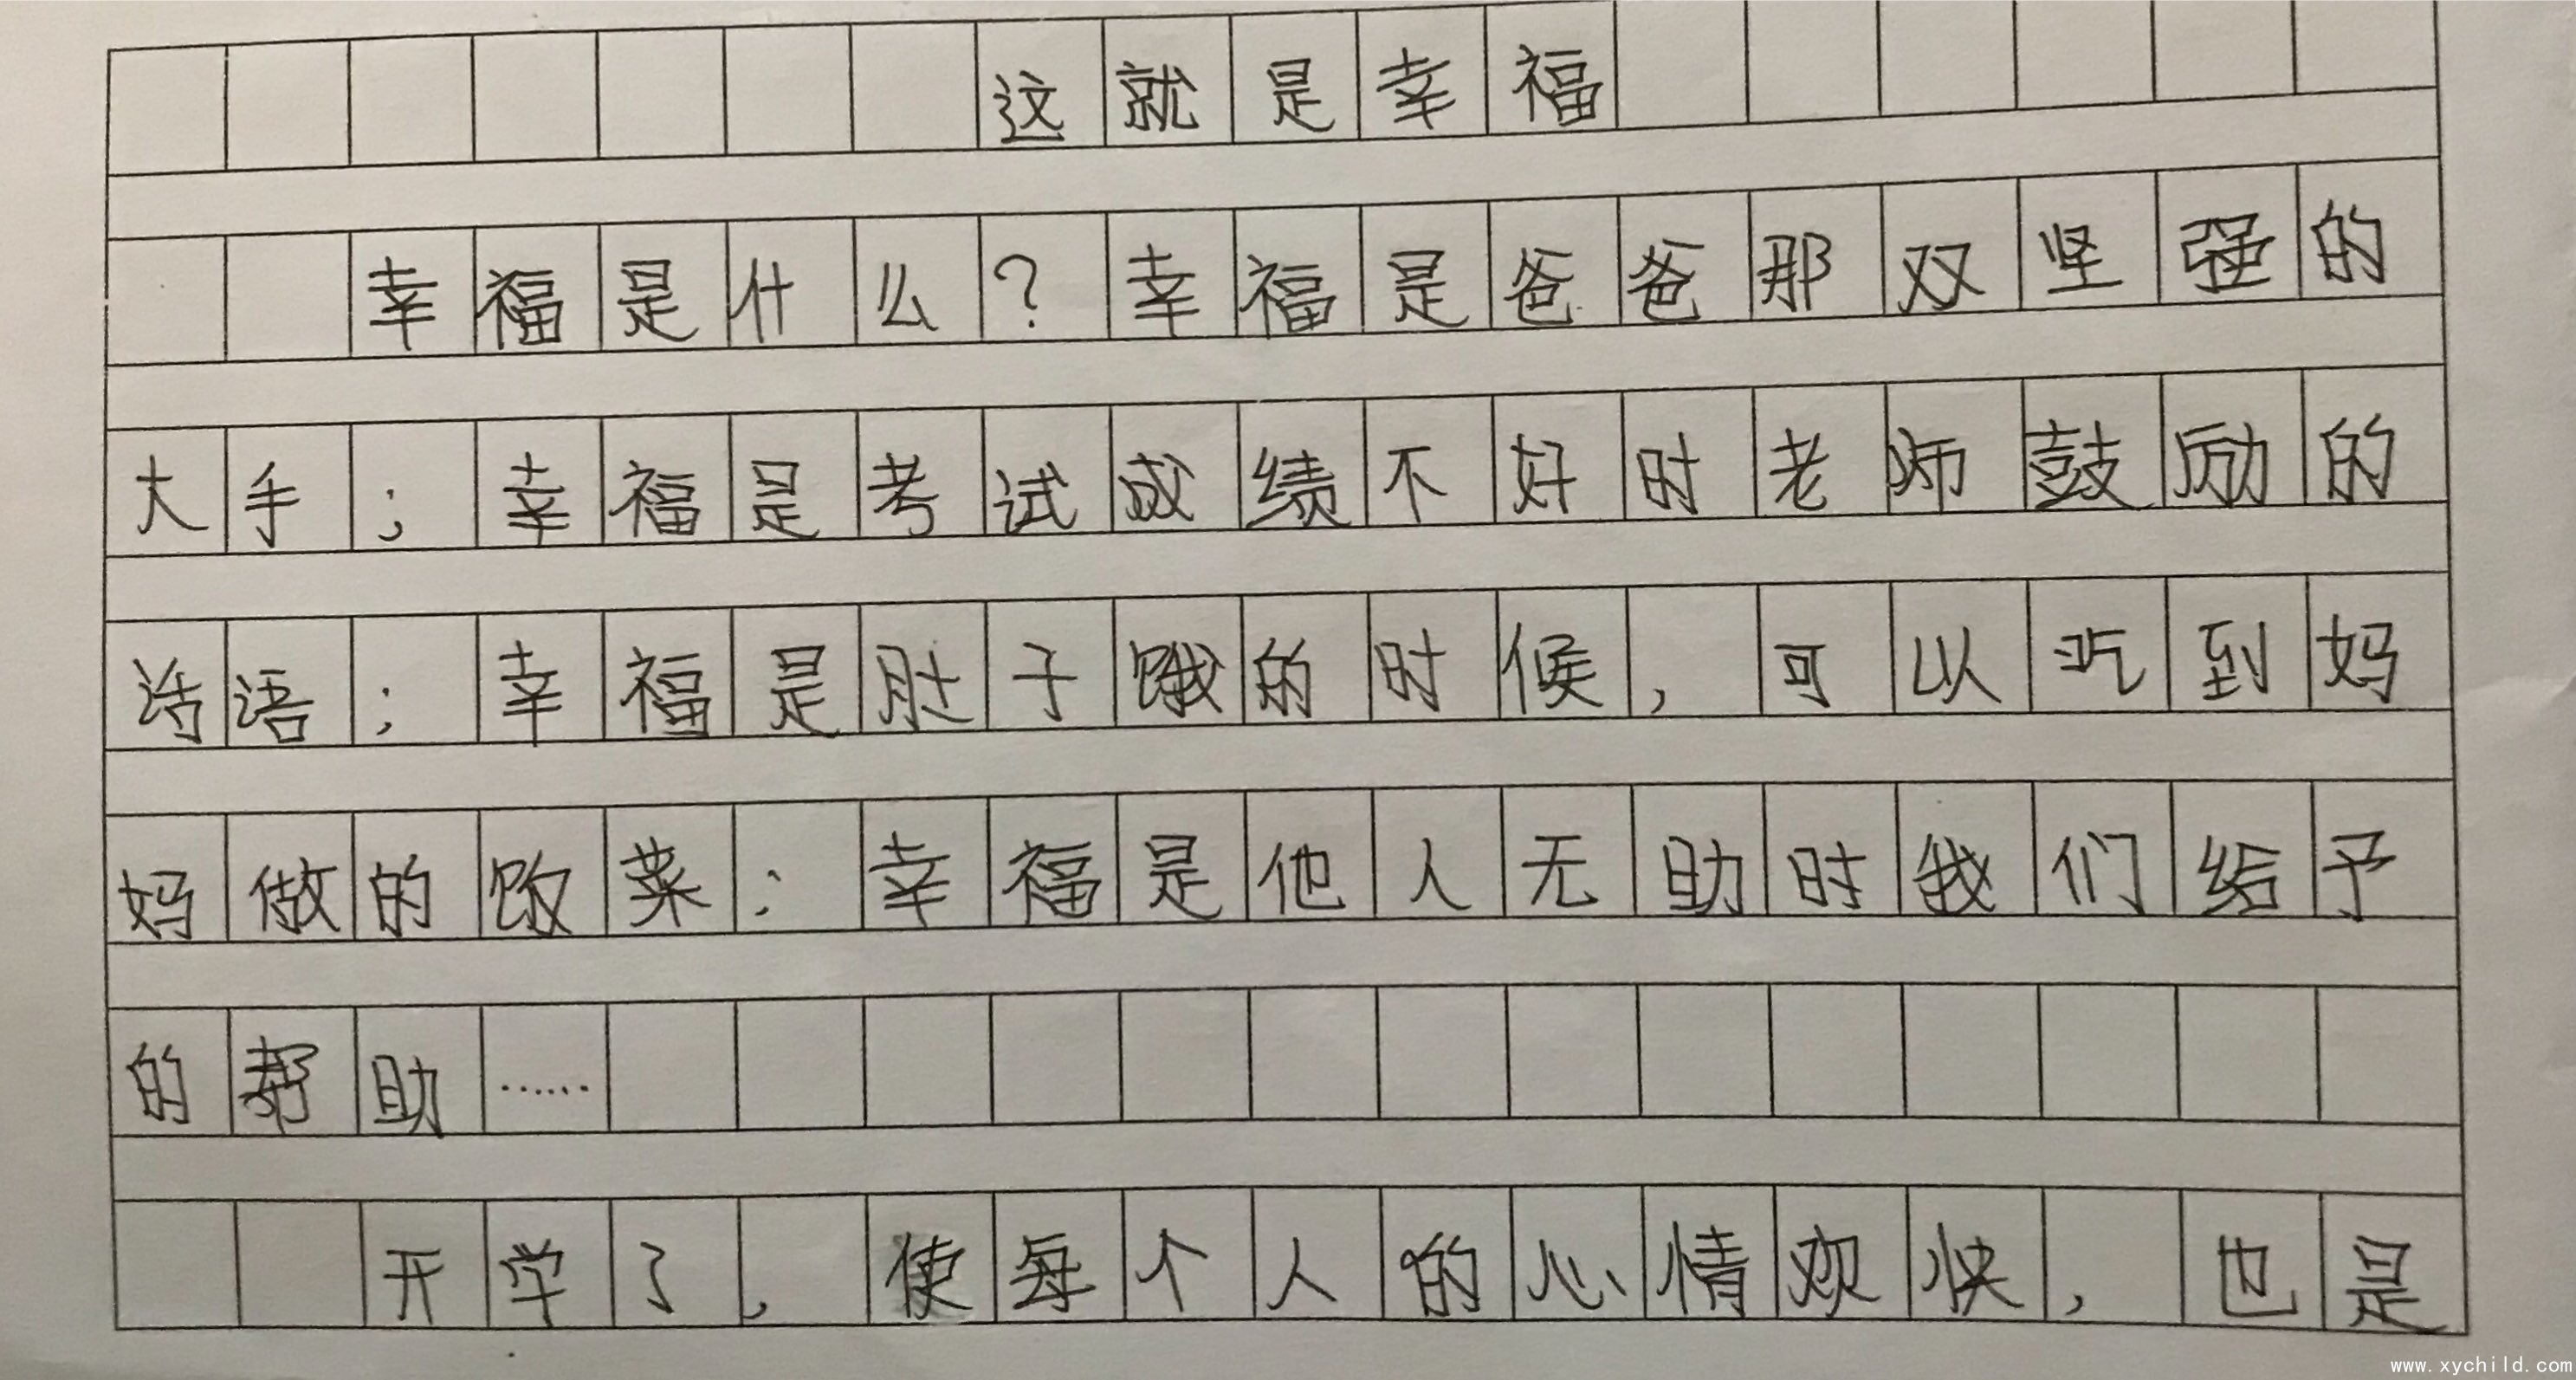 这就是幸福
幸福是什么？幸福是爸爸那双坚强的
大手；幸福是考试成绩不好时老师鼓励的
话语；幸福是肚子饿的时候，可以吃到妈
妈做的饭菜；幸福是他人无助时我们给予
的帮助……
开学了，使每个人的心情欢快，也是
www.xychild.com